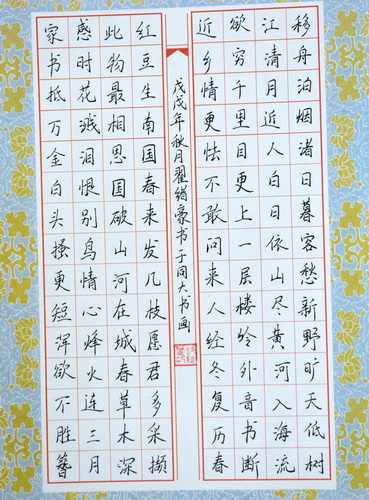 移舟泊烟渚日暮客愁新野旷天低树
江清月近人白日依山尽黄河入海流
欲穷千里目更上一层楼岭外音书断
近乡情更怯不敢问来人经冬复历春
戊戌年秋月翟绪豪书于同大书画
红豆生南国春来发几枝愿君多采撷
此物最相思国破山河在城春草木深
感时花溅泪恨别鸟情心烽火连三月
家书抵万金白头搔更短浑欲不胜簪